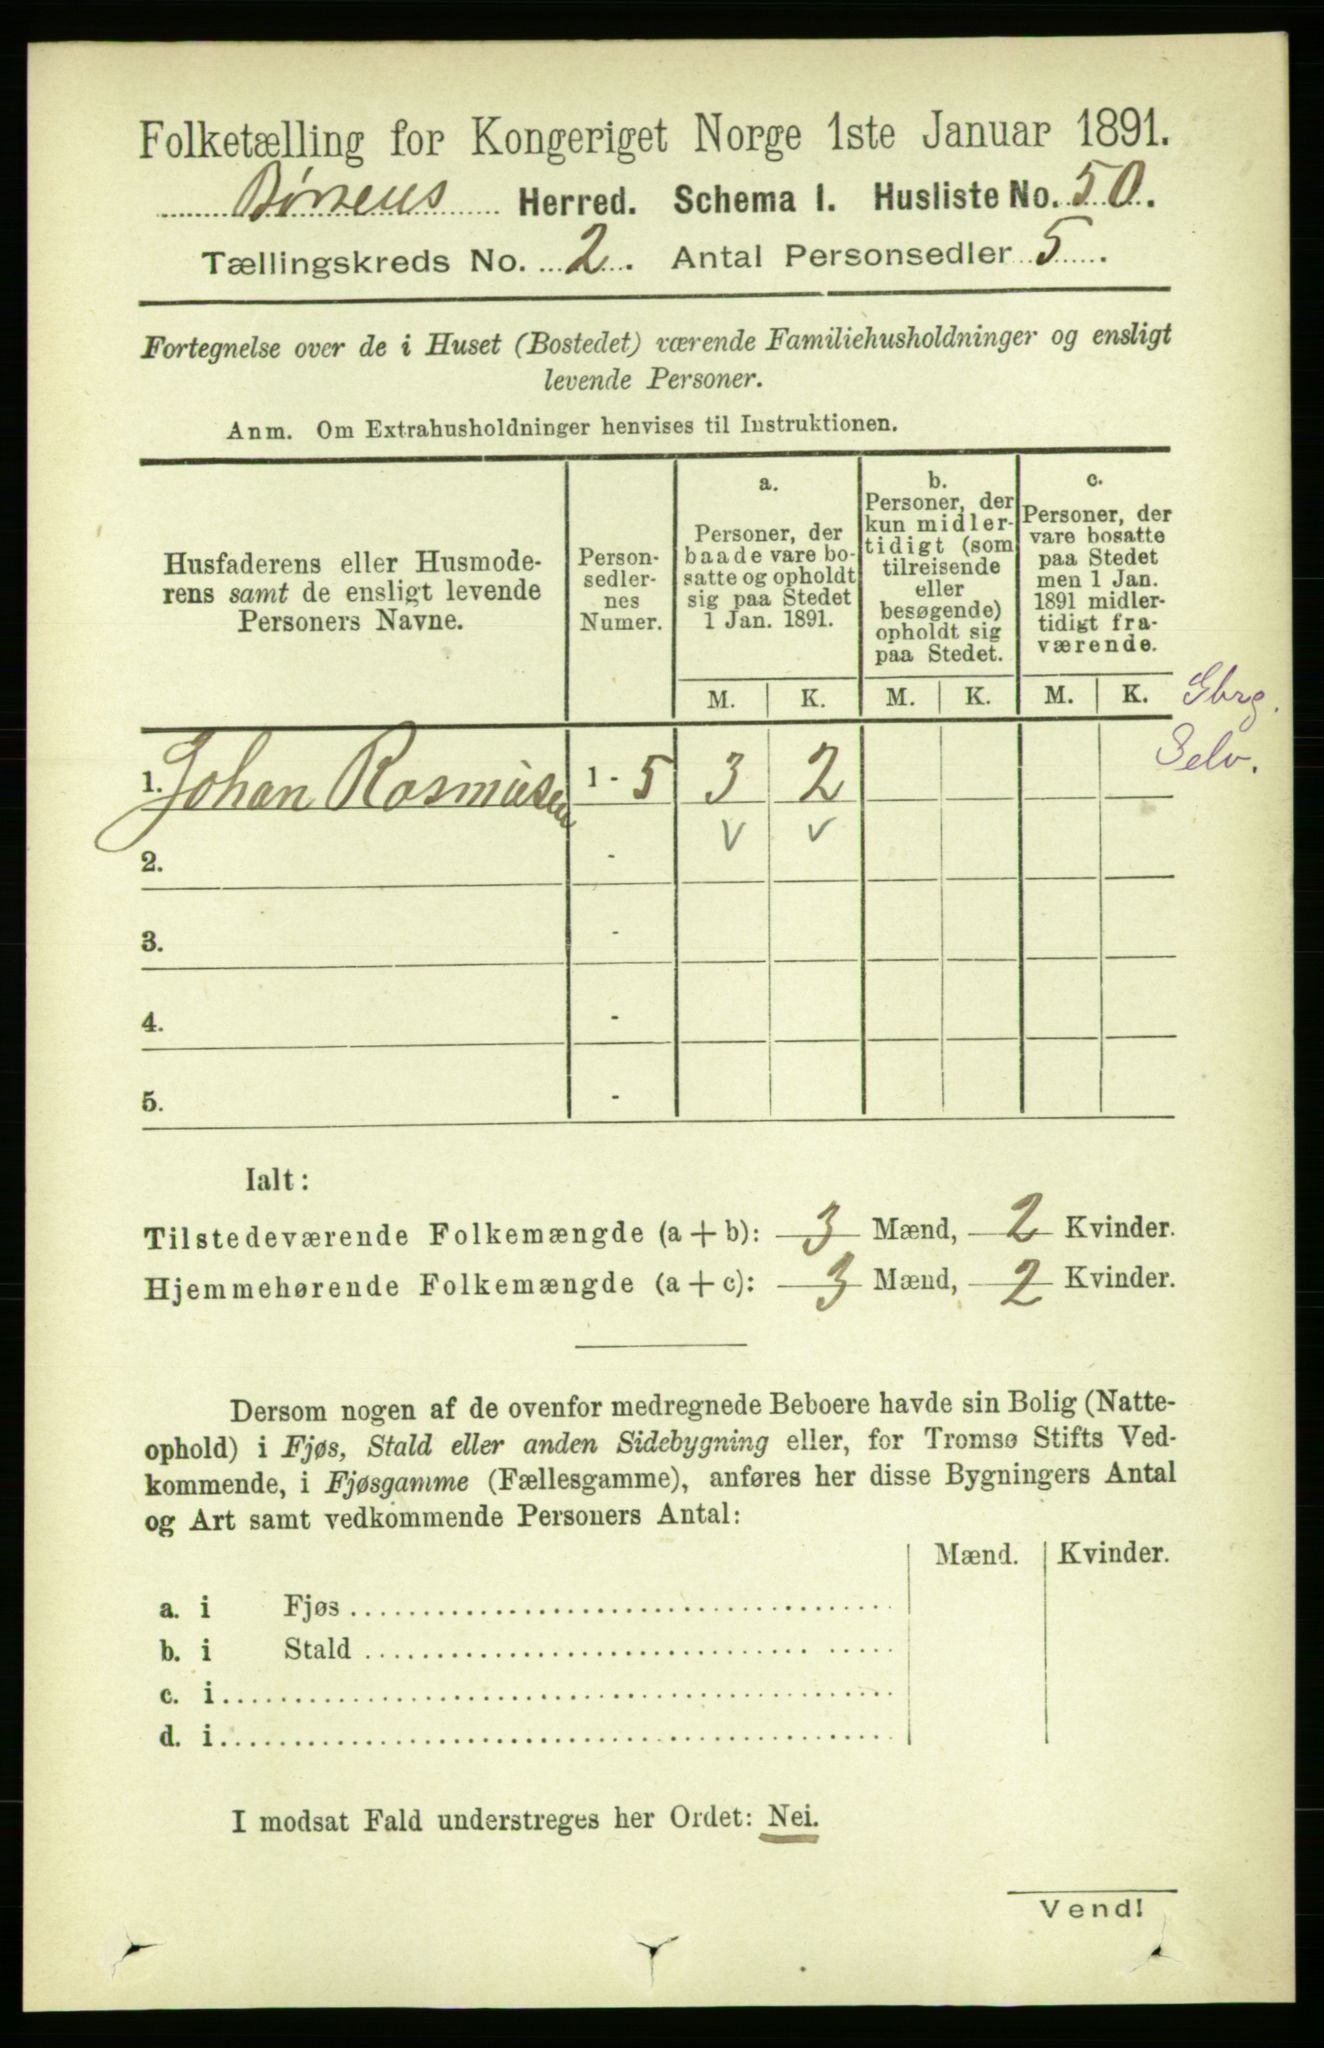 Folketælling for Kongeriget Norge 1ste Januar 1891.
Børsens Herred. Schema I. Husliste No. 50.
Tællingskreds No. 2. Antal Personsedler 5.
Fortegnelse over de i Huset (Bostedet) værende Familiehusholdninger og ensligt
levende Personer.
Anm. Om Extrahusholdninger henvises til Instruktionen.
Husfaderens eller Husmode-
rens samt de ensligt levende
Personers Navne.
Person-
sedler-
nes
Numer.
a.
Personer, der
baade vare bo-
satte og opholdt
sig paa Stedet
1 Jan. 1891.
b.
Personer, der
kun midler-
tidigt (som
tilreisende
eller
besøgende)
opholdt sig
paa Stedet.
c.
Personer, der
vare bosatte
paa Stedet
men 1 Jan.
1891 midler-
tidigt fra-
værende.
M. K. M. K. M. K. Gbrg.
Selv.
1. Johan Rasmusen 1 - 5 3 2
v v
2. -
3. -
4. -
5. -
Ialt:
Tilstedeværende Folkemængde (a + b): 3 Mænd, 2 Kvinder.
Hjemmehørende Folkemængde (a + c): 3 Mænd, 2 Kvinder.
Dersom nogen af de ovenfor medregnede Beboere havde sin Bolig (Natte-
ophold) i Fjøs, Stald eller anden Sidebygning eller, for Tromsø Stifts Ved-
kommende, i Fjøsgamme (Fællesgamme), anføres her disse Bygningers Antal
og Art samt vedkommende Personers Antal:
Mænd. Kvinder.
a. i Fjøs
b. i Stald
c. i
d. i
I modsat Fald understreges her Ordet: Nei.
Vend!